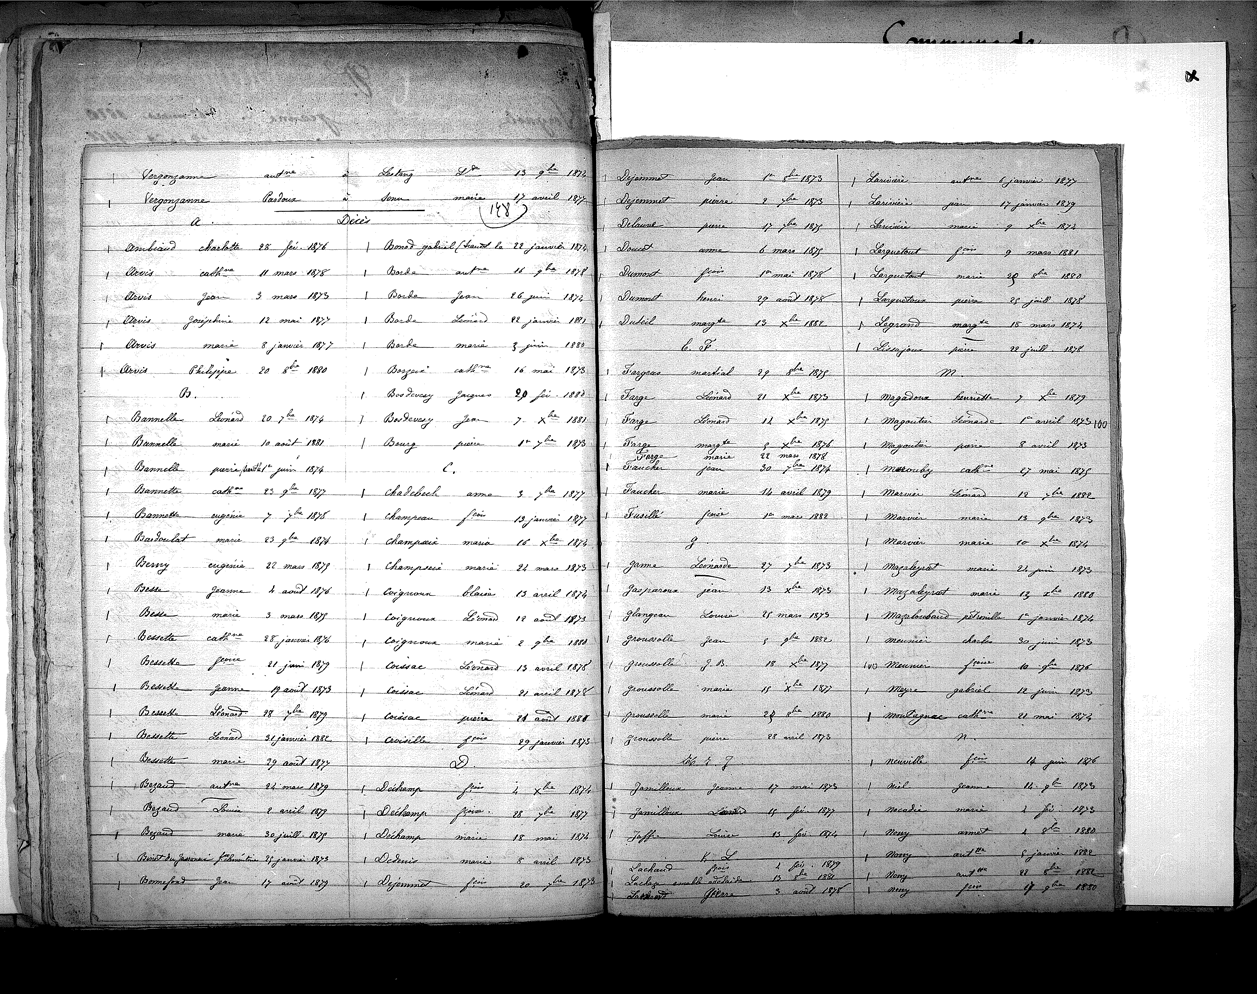 Commune de
Vergonzanne antne à Lestang Lde 13 9bre 1874
Vergonzanne Pardoux à Senu marie 17 avril 1877
148
Décès
A.
Ambiaud charlotte 28 fév. 1876
Arvis cathne 11 mars 1878
Arvis Jean 3 mars 1873
Arvis Joséphine 12 mai 1877
Arvis marie 8 janvier 1877
Arvis Philippe 20 8bre 1880
B.
Bannelle Léonard 20 7bre 1874
Bannelle marie 10 août 1881
Bannelle pierre 1er juin 1874
Bannette cathne 23 9bre 1877
Bannette eugénie 7 7bre 1878
Bardoulat marie 23 9bre 1874
Berny eugénie 22 mars 1879
Besse jeanne 4 août 1876
Besse marie 3 mars 1875
Bessette cathne 28 janvier 1876
Bessette 21 juin 1879
Bessette Jeanne 19 août 1873
Bessette Léonard 28 7bre 1879
Bessette Léonard 31 janvier 1882
Bessette marie 29 août 1877
Bezaud antne 24 mars 1879
Bezaud Louise 2 avril 1879
Bezaud marie 30 juill 1875
25 janvier 1873
Bonnefond Jean 17 août 1879
Bonod gabriel 22 janvier 1874
Borde antne 16 9bre 1878
Borde Jean 26 juin 1874
Borde Léonard 22 janvier 1881
Borde marie 3 juin 1880
cathne 16 mai 1873
Bosdevesy Jacques 20 fév. 1882
Bosdevesy Jean 7 Xbre 1881
Bourg pierre 1er 7bre 1873
C.
Chadebech anne 3 7bre 1877
Champeau fçois 13 janvier 1877
Champeix maria 16 Xbre 1874
Champseix marie 24 mars 1873
Coignoux blaise 13 avril 1874
Coignoux Léonard 12 août 1873
Coignoux marie 2 9bre 1880
Coissac Léonard 13 avril 1878
Coissac Léonard 21 avril 1878
Coissac pierre 21 août 1881
Croisille fçois 29 janvier 1873
D.
Déchamp fçois 4 Xbre 1874
Déchamp 28 7bre 1877
Déchamp marie 18 mai 1874
Dedenis marie 8 avril 1873
Dejammet fçois 20 7bre 1873
Dejammet Jean 1er 8bre 1873
Dejammet pierre 2 7bre 1873
Delaval pierre 17 7bre 1875
Doucet anna 6 mars 1875
Dumont fçois 1er mai 1878
Dumont henri 29 août 1878
Duteil margte 13 Xbre 1882
E. F.
Fargeas martial 29 8bre 1875
Farge Léonard 21 Xbre 1873
Farge Léonard 12 Xbre 1875
Farge margte 2 Xbre 1876
Farge marie 22 mars 1878
Faucher jean 30 7bre 1874
Faucher marie 14 avril 1879
Fusillé 1er mars 1882
G.
Ganne Léonarde 27 7bre 1873
Gasparoux jean 23 Xbre 1873
Glangeau Louise 25 mars 1873
Groussolle jean 5 9bre 1882
Groussolle J. B. 18 Xbre 1877
Groussolle marie 15 Xbre 1877
Groussolle marie 29 8bre 1880
Groussolle pierre 28 avril 1873
H. I. J
Jamilloux Jeanne 17 mai 1873
Jamilloux Léonard 15 fév. 1877
Joffre Louise 13 fév. 1874
K. L
Lachaud fçois 2 fév. 1879
Lachèze 13 8bre 1881
Pierre 3 août 1878
Larivière antne 6 janvier 1877
Larivière jean 17 janvier 1879
Larivière marie 9 Xbre 1874
Lerquetout fçois 9 mars 1881
Lerquetout marie 29 8bre 1880
Larquetoux pierre 25 juill 1878
Legrand margte 18 mars 1874
Lissajoux pierre 22 juill. 1878
M
Magadoux henriette 7 Xbre 1879
Magoutier Léonarde 1er avril 1873
100
Magoutier pierre 8 avril 1873
cathne 27 mai 1875
Marvier Léonard 12 7bre 1882
Marvier marie 13 9bre 1873
Marvier marie 20 Xbre 1874
Mazaleyrat marie 24 juin 1873
Mazaleyrat marie 13 Xbre 1880
1er janvier 1874
Meunier charles 30 juin 1873
Meunier 10 1876
Meyre gabriel 12 juin 1873
Montagnac cathne 21 mai 1874
N.
Neuville fçois 14 juin 1876
Niel Jeanne 14 9bre 1873
Nocadie marie 2 fév. 1873
Nony annet 2 8bre 1880
Nony antne 5 janvier 1882
Nony antne 22 8bre 1882
Nony 17 9bre 1880